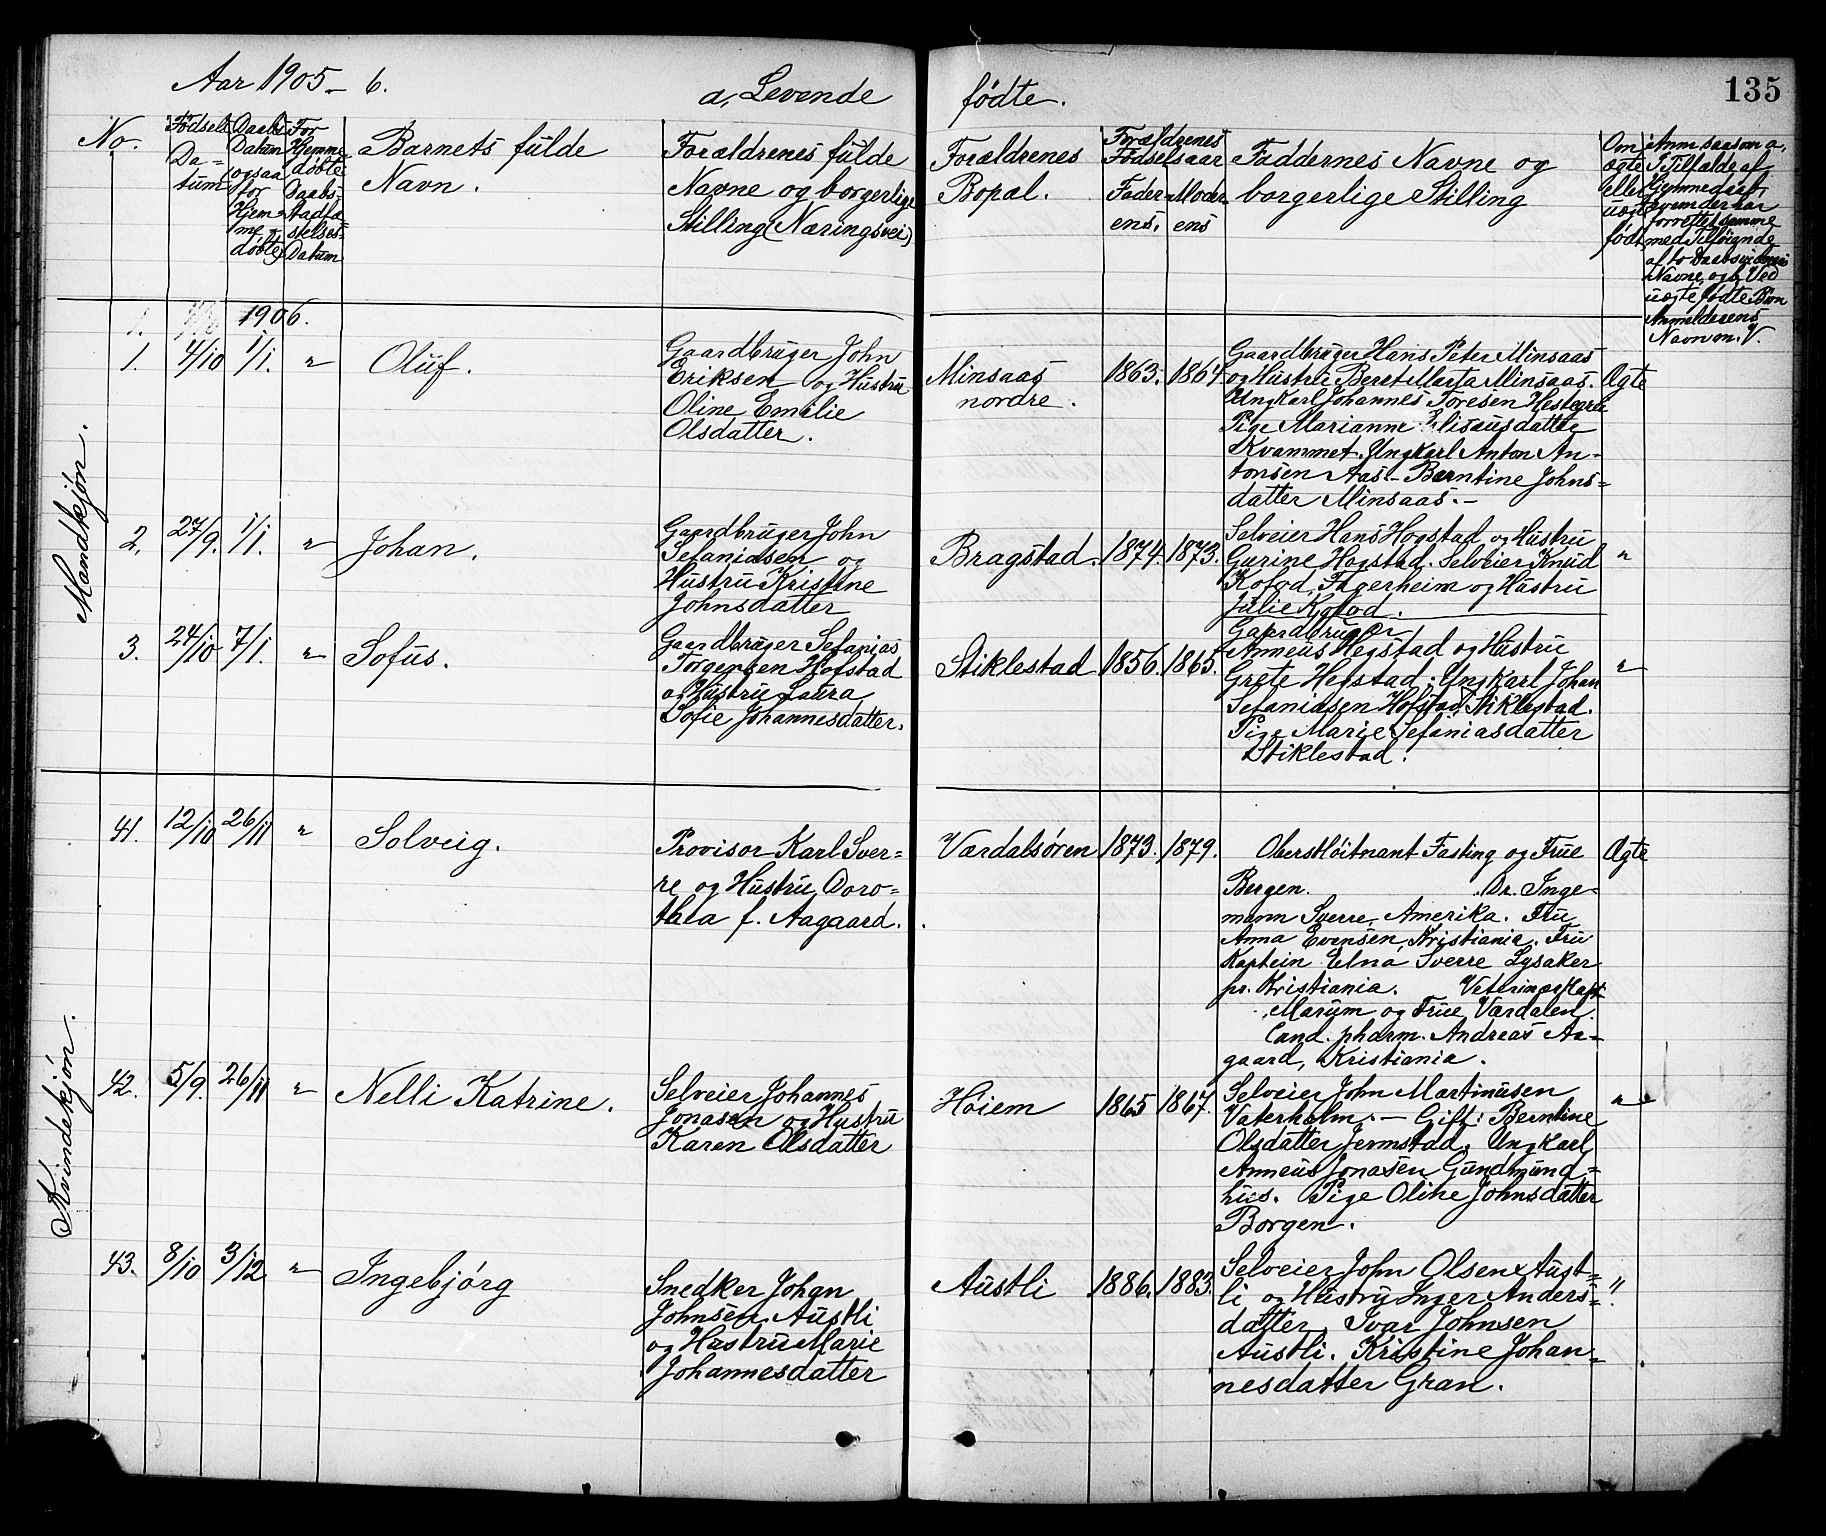 Aar 1905 - 6.
a, Levende
fødte.
135
No.
Fødsels
Da-
tum
Daabs
Datum
ogsaa
for
Hjem-
me
døbte
For
Hjemme-
døbte
Daabs-
stadfæ-
stelses-
Datum
Barnets fulde
Navn.
Forældrenes fulde
Navne og borgerlige
Stilling (Næringsvei)
Forældrenes
Bopæl.
Forældrenes
Fødselsaar
Fader-
ens.
Moder
ens
Faddernes Navne og
borgerlige Stilling
Om
ægte
eller
uægte
født
Anm. saasom a,
I Tilfælde af
Hjemmedaab,
hvem der har
forrettet samme
med Tilføiende
af to Daabsvidners
Navne, og b, Ved
uægte fødte Børn
Anmelderens
Navn m. V.
1906.
1.
Mandkjøn.
1. 4/10 1/1. " Oluf.
Gaardbruger John
Eriksen og Hustru
Oline Emilie
Olsdatter.
Minsaas
nordre.
1863. 1864.
Gaardbruger Hans Peter Minsaas
og Hustru Beret Marta Minsaas.
Ungkarl Johannes Toresen Hestegrei
Pige Marianne Eliseusdatter
Kvammet. Ungkarl Anton An-
tonsen Aas - Berntine Johns=
datter Minsaas. -
Ægte
2. 27/9. 1/1. " Johan.
Gaardbruger John
Sefaniasen og
Hustru Kristine
Johnsdatter
Bragstad. 1874. 1873.
Selveier Hans Hogstad og Hustru
Gurine Hogstad. Selveier Knud
Kofod, Fagerheim og Hustru
Julie Kofod.
"
3. 24/10 7/1. " Sofus.
Gaardbruger Sefanias
Torgersen Hofstad
og Hustru Laura
Sofie Johannesdatter.
Stiklestad 1856. 1865.
Gaardbruger
Anneus Hegstad og Hustru
Grete Hegstad; Ungkarl Johan
Sefaniasen Hofstad, Stiklestad.
Pige Marie Sefaniasdatter
Stiklestad.
"
Kvindekjøn.
41. 12/10 26/11 " Solveig.
Provisor Karl Sver=
re og Hustru Doro=
thea f. Aagaard.
Værdalsøren 1873. 1879.
Oberstløitnant Fasting og Frue
Bergen. Dr. Inge=
mann Sverre, Amerika. Fru
Anna Evensen, Kristiania. Fru
Kaptein Elna Sverre Lysaker
pr. Kristiania. Veterinær Kapt.
Marum og Frue Værdalen.
Cand. pharm. Andreas Aa=
gaard, Kristiania.
Ægte
42. 5/9. 26/11 " Nelli Katrine.
Selveier Johannes
Jonasen og Hustru
Karen Olsdatter
Høiem 1865 1867.
Selveier John Martinusen
Vaterholm. - Gift: Berntine
Olsdatter Jermstad, Ungkarl
Anneus Jonasen Gundmund=
hus. Pige Oline Johnsdatter
Borgen.
"
43. 8/10 3/12 " Ingebjørg
Snedker Johan
Johnsen Austli
og Hustru Marie
Johannesdatter
Austli 1886. 1883.
Selveier John Olsen Aust=
li og Hustru Inger Anders=
datter, Ivar Johnsen
Austli. Kristine Johan=
nesdatter Gran.
"